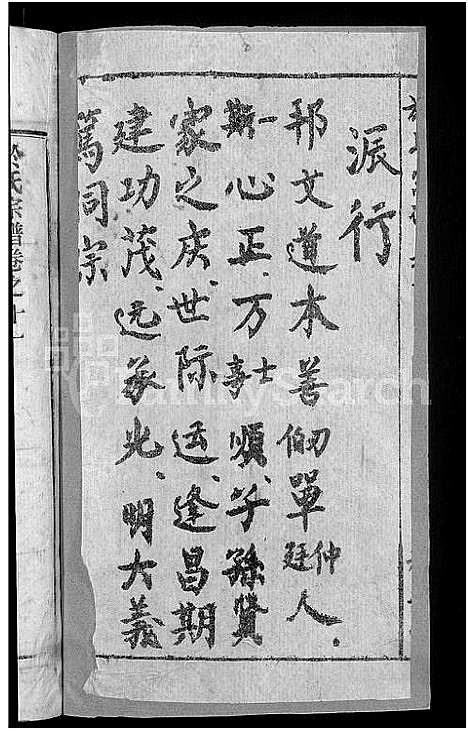 派行
邦文道本善伯單仲廷人
斯一心正万事士順子孫賢
家之庆世际运逢昌期
建功茂远承光明大義
篤同宗
於氏宗譜卷之十
FamilySearch